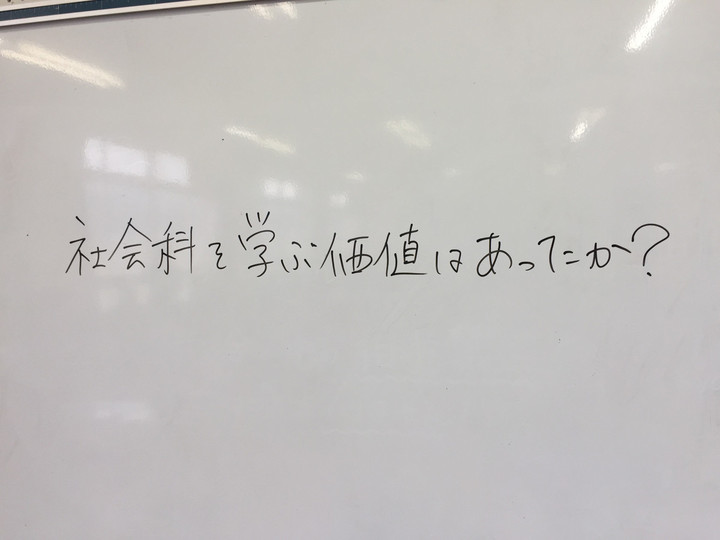 社会科を学ぶ価値はあったか?